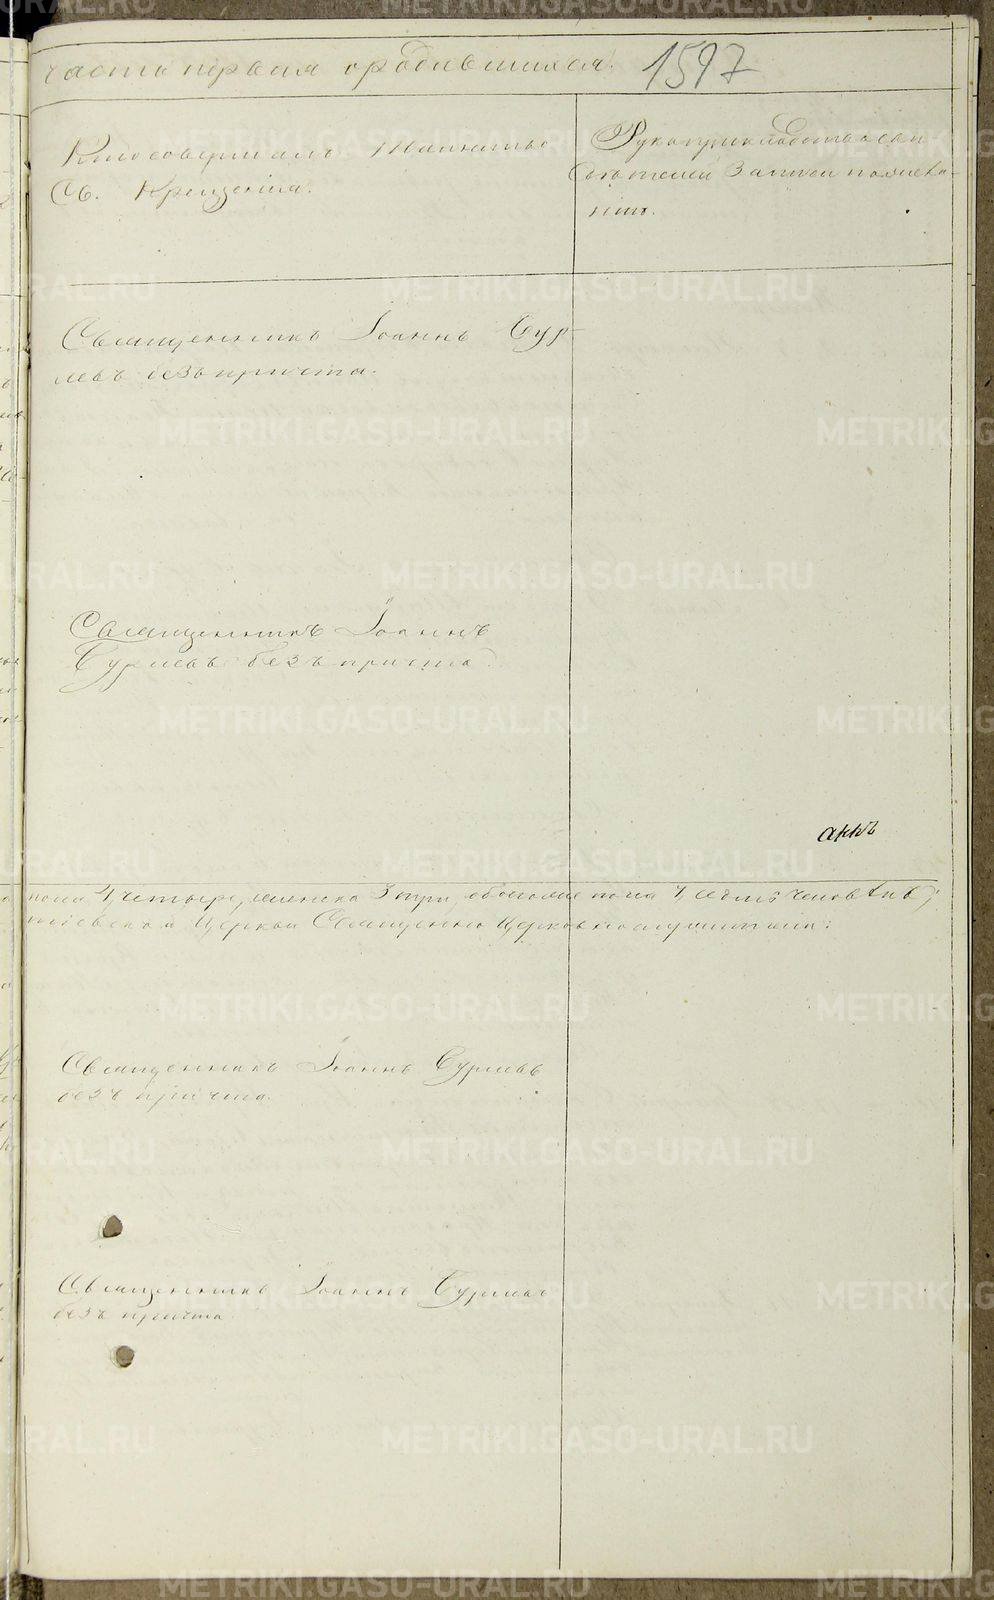 часть первая о родившихся. 1597
Кто совершалъ таинство
Св. Крещенія.
Рукоприкладство сви
дѣтелей записи по жела-
нію.
Священникъ Іоаннъ Сур
левъ безъ причта.
Священникъ Іоаннъ
Сурлевъ безъ причта
аккъ
пола 4, четыре, женска 3 три, обоего пола 7, седмь человѣкъ;
Церкви Священно Церковнослужители:
Священникъ Іоаннъ Сурлевъ
безъ причта.
Священникъ Іоаннъ Сурлевъ
безъ причта
METRIKI.GASO-URAL.RU